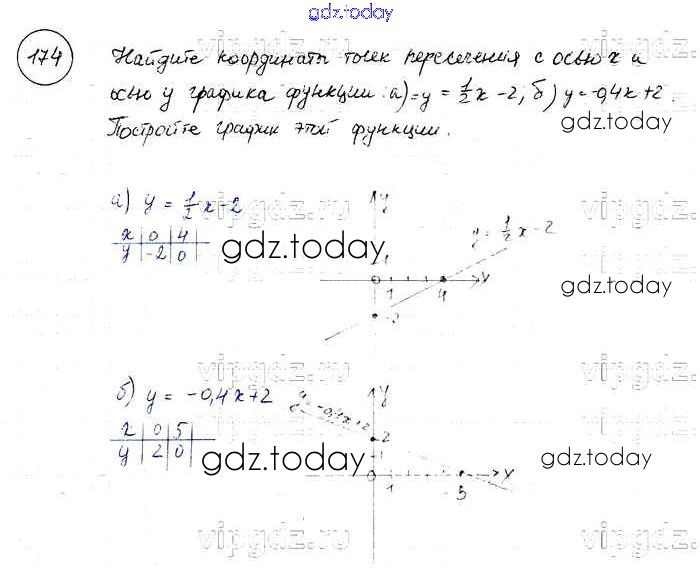 gdz.today
174 Найдите координаты точек пересечения с осью x и
осью y графика функции: а) y = 1/2 x - 2; б) y = -0,4x + 2.
Постройте график этой функции.
gdz.today
а) y = 1/2 x - 2
x | 0 | 4
y | -2 | 0
gdz.today
y
y = 1/2 x - 2
1
0 1 4 x
-2
gdz.today
vipgdz.ru
б) y = -0,4x + 2
x | 0 | 5
y | 2 | 0
gdz.today
y
y = -0,4x + 2
2
0 1 5 x
gdz.today
vipgdz.ru